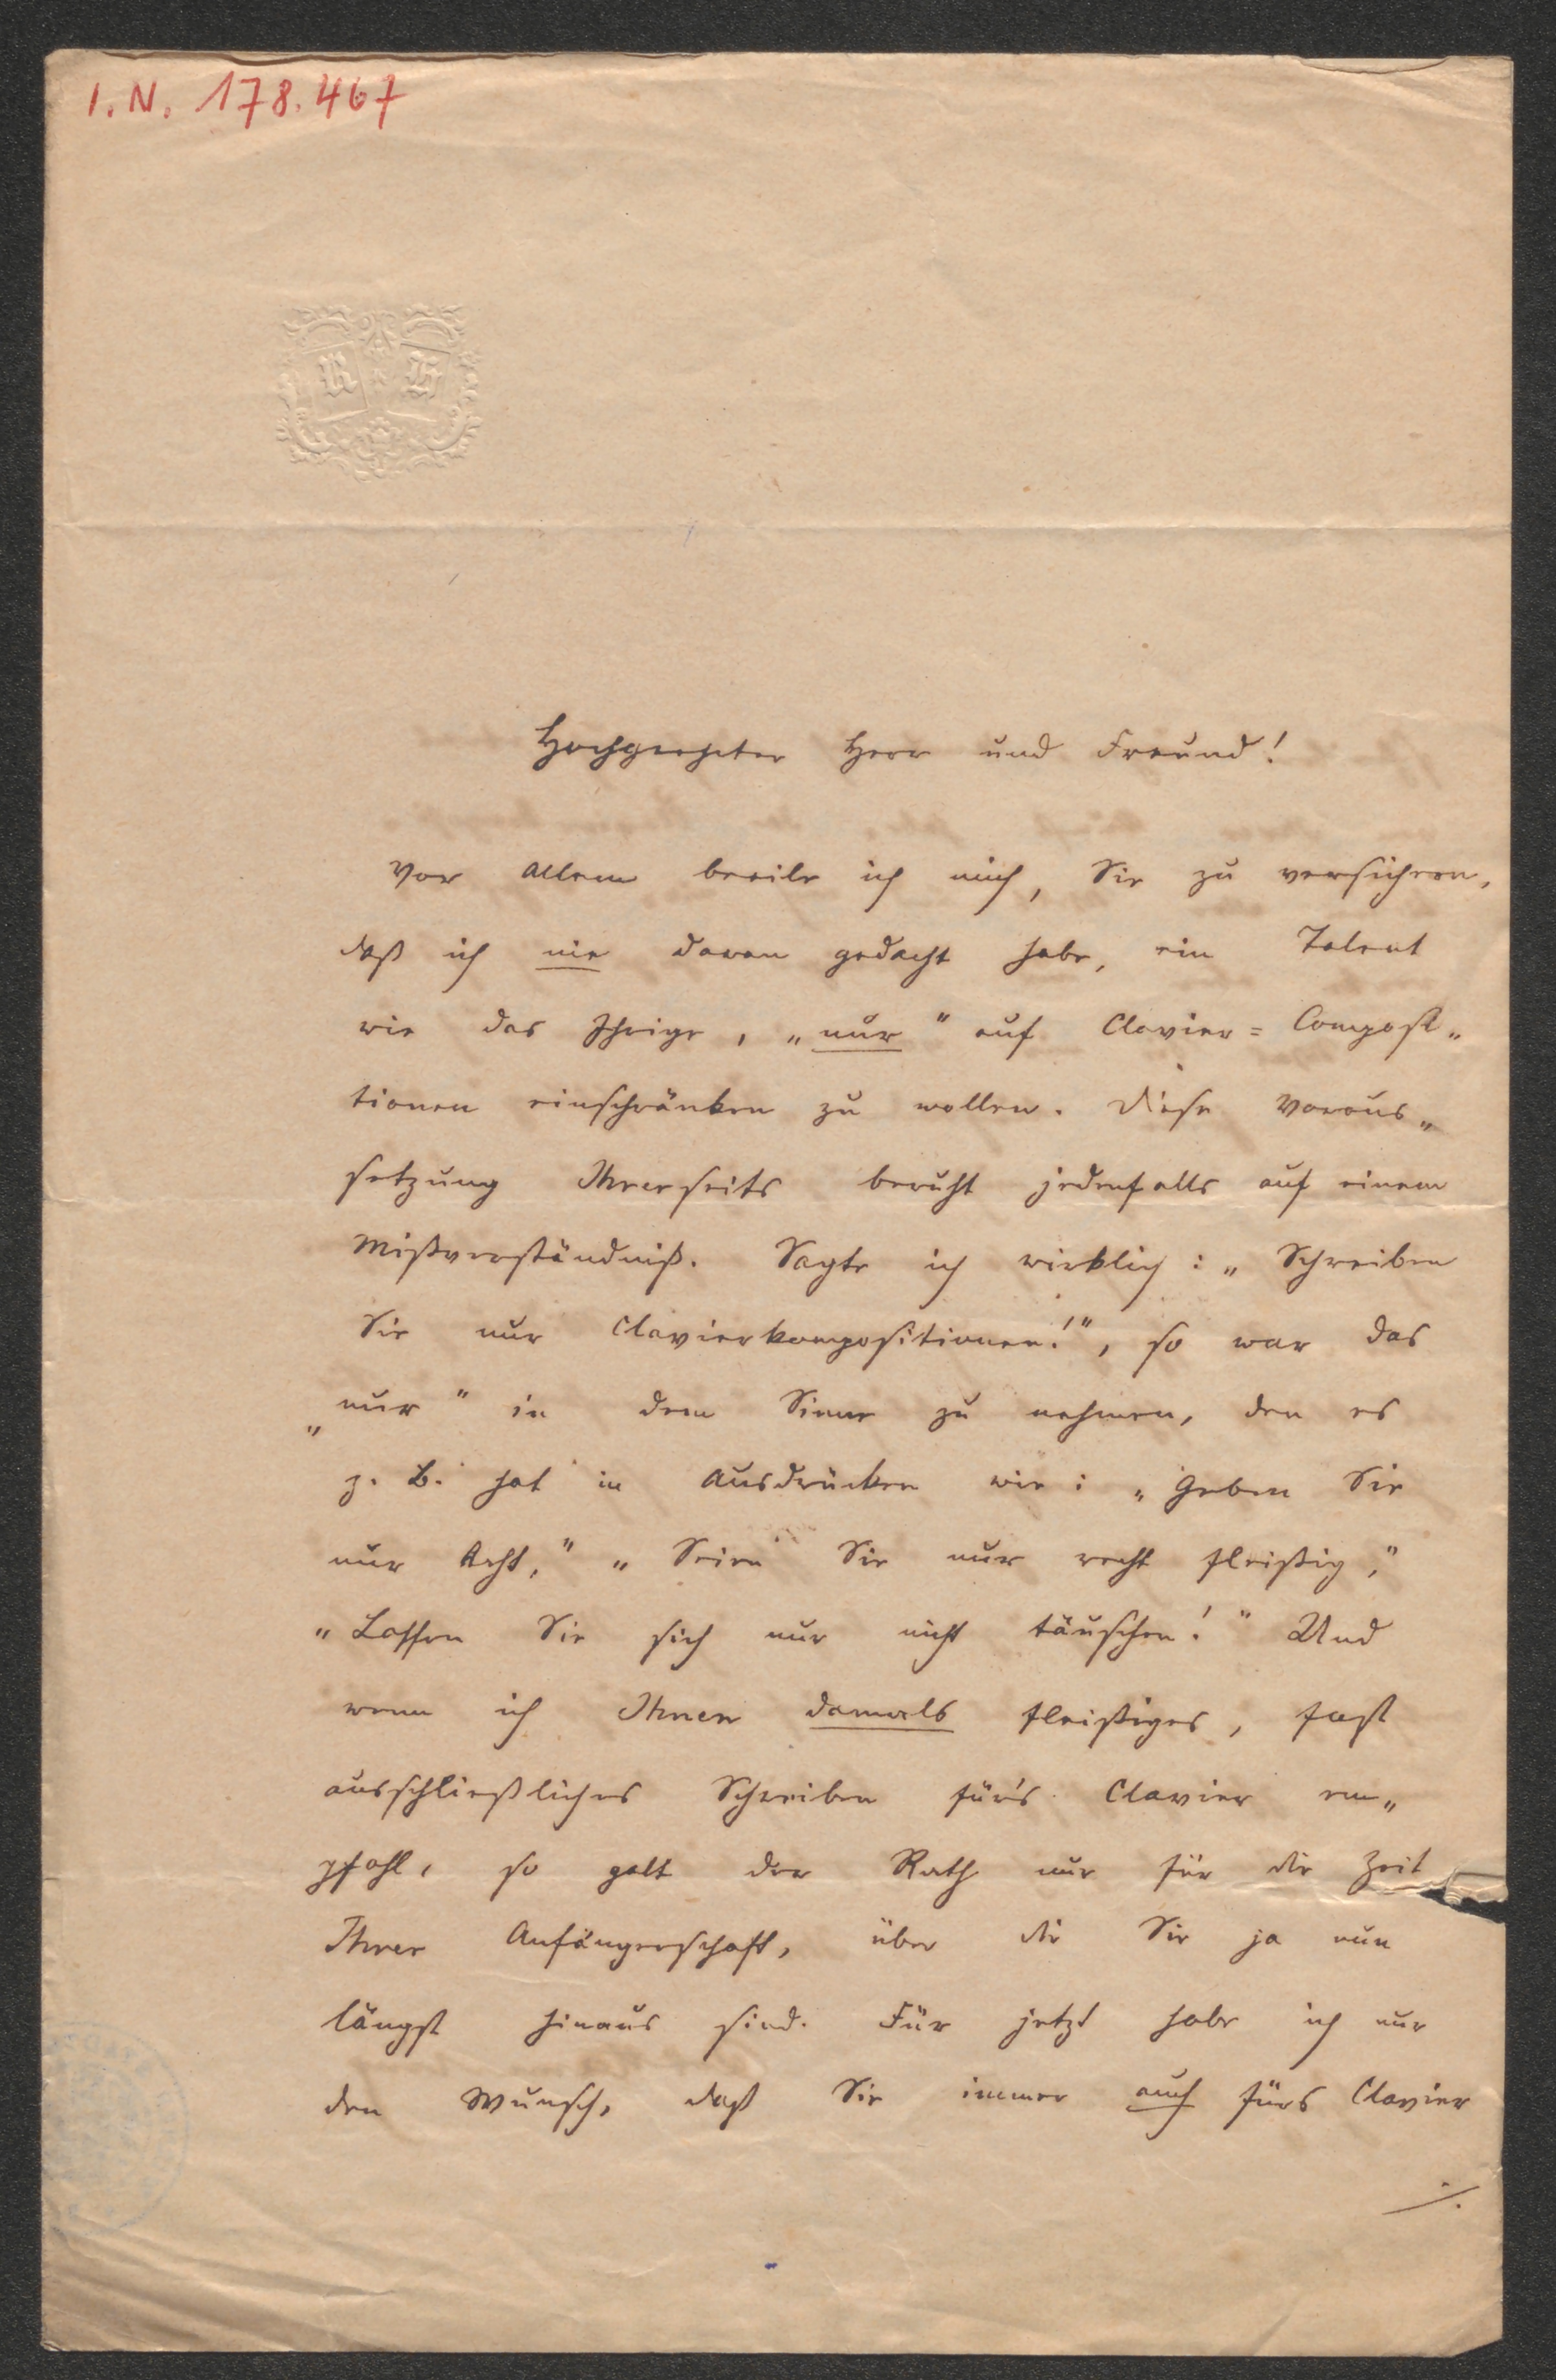 I. N. 178.467
R H
Hochgeehrter Herr und Freund!
Vor Allem beeile ich mich, Sie zu versichern,
daß ich nie daran gedacht habe, ein Talent
wie das Ihrige, „nur" auf Clavier=Composi„
tionen einschränken zu wollen. Diese Voraus„
setzung Ihrerseits beruht jedenfalls auf einem
Mißverständniß. Sagte ich wirklich: „Schreiben
Sie nur Clavierkompositionen!", so war das
„nur" in dem Sinne zu nehmen, den es
z. B. hat in Ausdrücken wie: „Geben Sie
nur Acht," „Seien Sie nur recht fleißig,"
„Lassen Sie sich nur nicht täuschen!" Und
wenn ich Ihnen damals fleißiges, fast
ausschließliches Schreiben für's Clavier em„
pfahl, so galt der Rath nur für die Zeit
Ihrer Anfängerschaft, über die Sie ja nun
längst hinaus sind. Für jetzt habe ich nur
den Wunsch, daß Sie immer auch fürs Clavier
./.